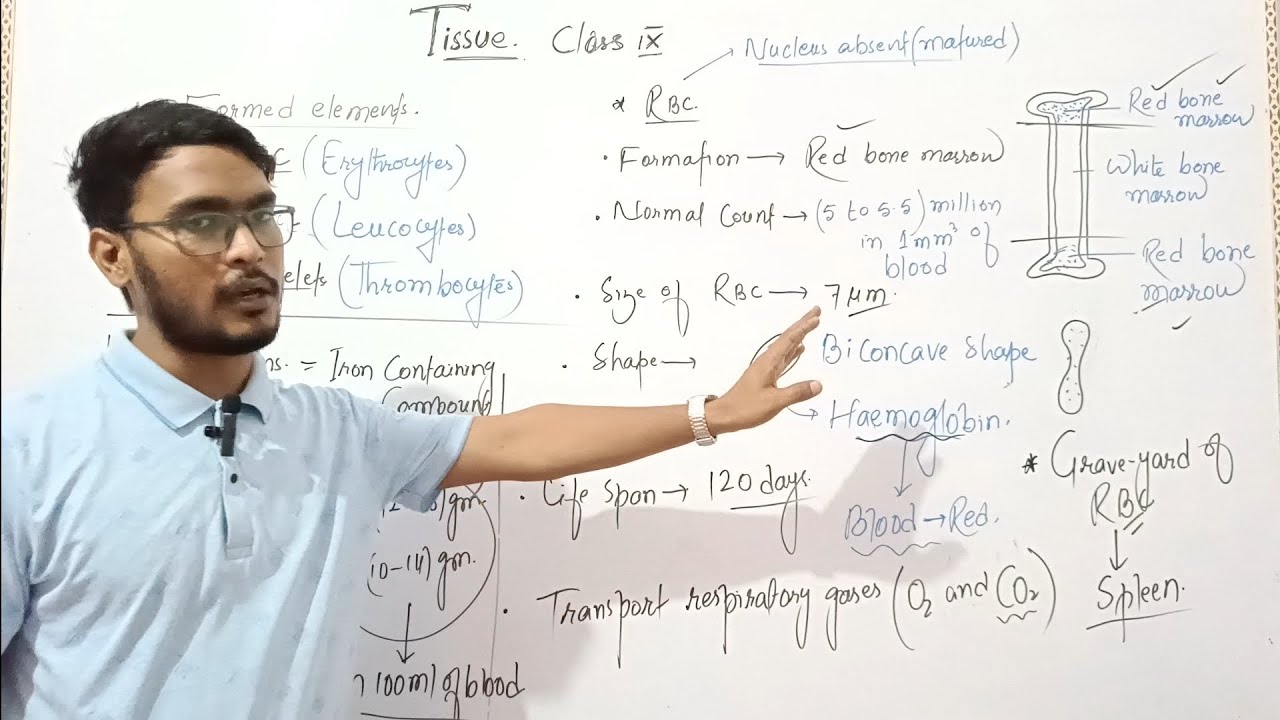 Tissue. Class IX
Formed elements.
(Erythrocytes)
(Leucocytes)
(Thrombocytes)
= Iron Containing
Compound
gm.
(10-14) gm.
100ml of blood
Nucleus absent (matured)
* RBC.
• Formation → Red bone marrow
• Normal Count → (5 to 5.5) million
in 1mm³ of
blood
• Size of RBC → 7 μm.
• Shape → Biconcave shape
Haemoglobin.
Blood → Red.
• Life Span → 120 days.
• Transport respiratory gases (O₂ and CO₂)
Red bone
marrow
White bone
marrow
Red bone
marrow
* Grave-yard of
RBC
Spleen.